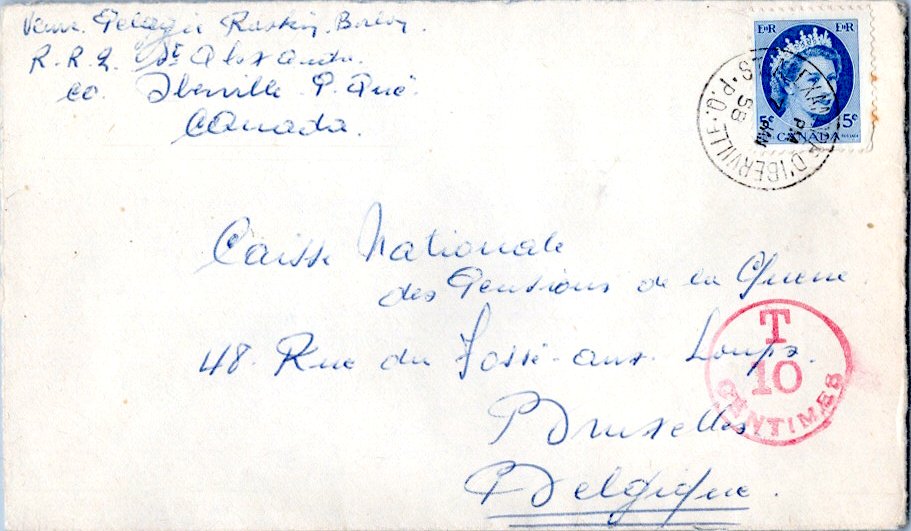 Veuve Pelagie Raskin
R.R.2. St Alexandre
Co. Iberville P. Qué
Canada.
E II R E II R
5¢ 5¢
CANADA
POSTAGE
D'IBERVILLE P.Q.
PM
58
Caisse Nationale
des Pensions de la Guerre
48. Rue du Fossé-aux-Loups.
Bruxelles
Belgique.
T
10
CENTIMES